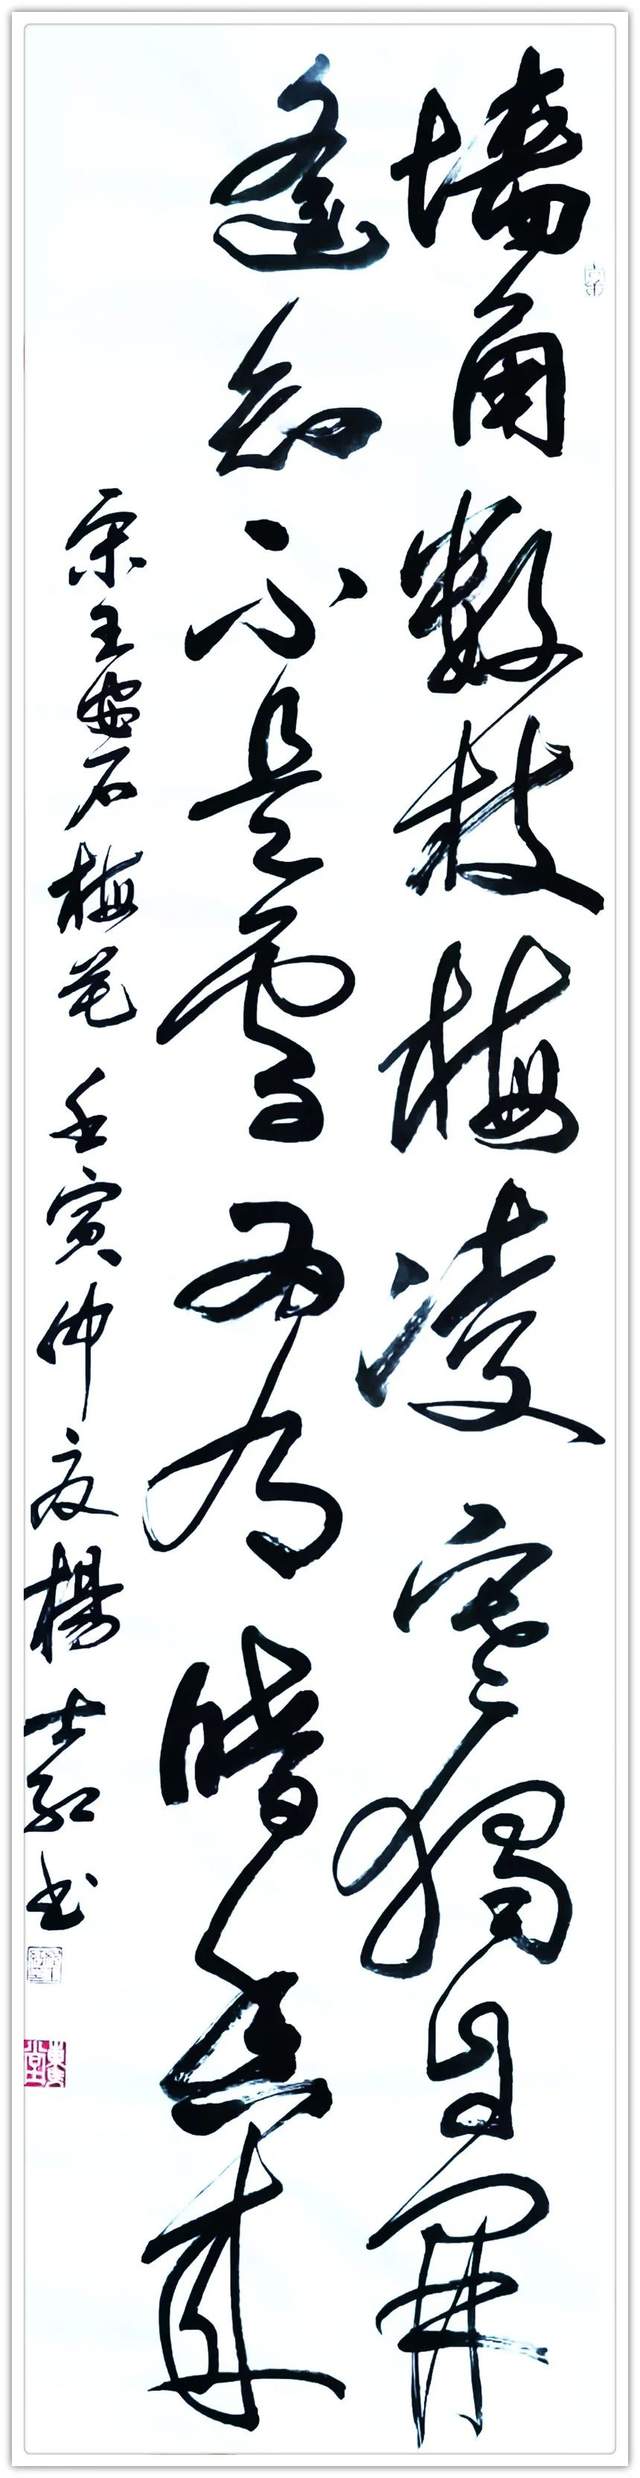 墙角数枝梅凌寒独自开
遥知不是雪为有暗香来
宋王安石梅花 壬寅仲夏杨士宏书